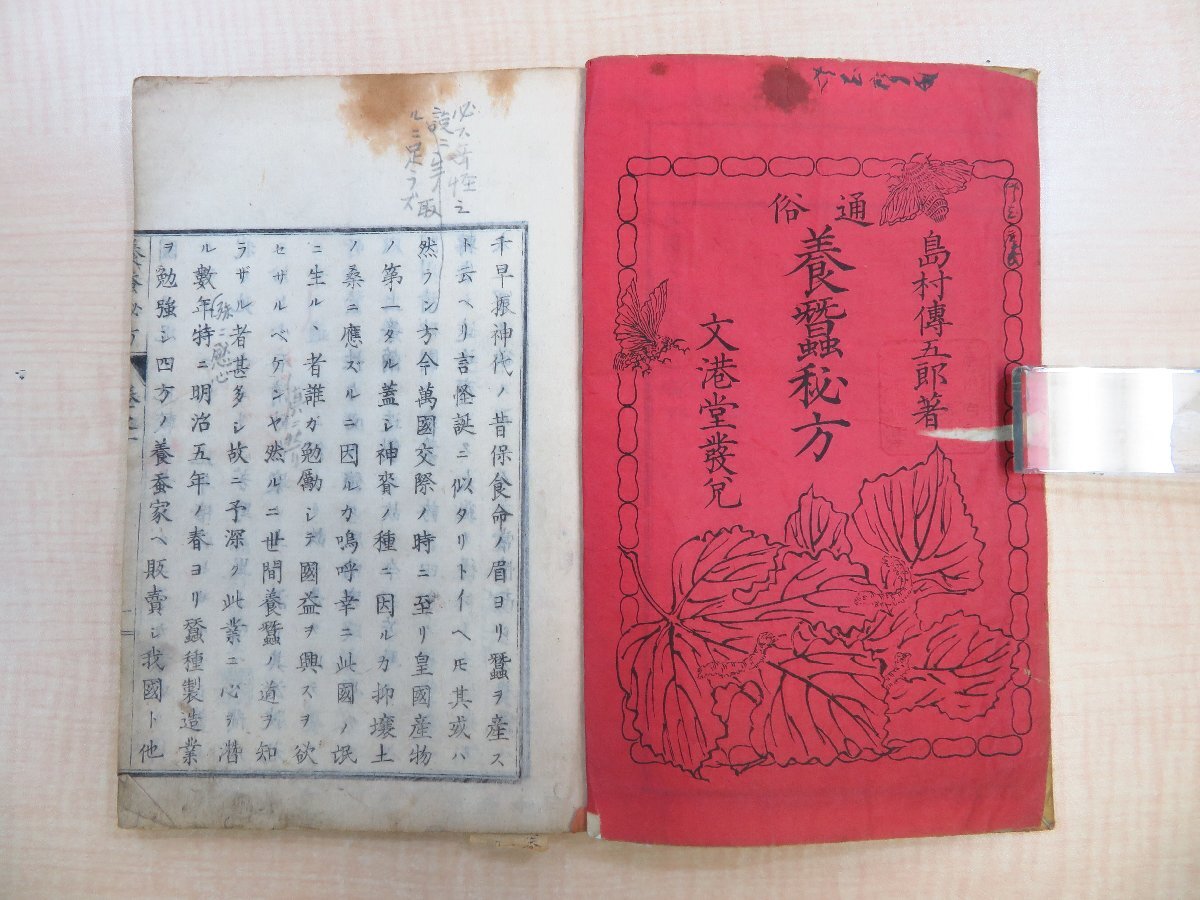 島村傳五郎著
通俗
養蠶秘方
文港堂發兌
必ス奇怪之
ルニ足ラズ
千早振神代ノ昔保食命ノ眉ヨリ蠶ヲ産ス
ト云ヘリ言怪誕ニ似タリトイヘ𪜈其或ハ
然ラン方今萬國交際ノ時ニ至リ皇國産物
ノ第一タル蓋シ神裔ノ種ニ因ルカ抑壌土
ノ桑ニ應ズルニ因ルカ嗚呼幸ニ此國ノ氓
ニ生ルヽ者誰カ勉勵シテ國益ヲ興スヲ欲
セザルベケンヤ然ルニ世間養蠶ノ道ヲ知
ラザル者甚多シ故ニ予深ク此業ニ心ヲ潜
ル數年特ニ明治五年ノ春ヨリ蠶種製造業
ヲ勉強シ四方ノ養蚕家ヘ販賣シ我國ト他